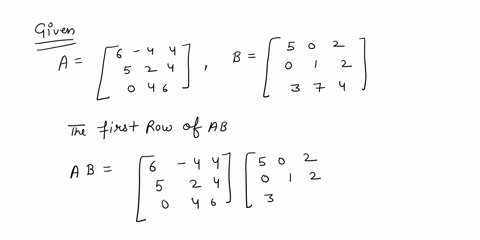 Given
A = [ 6 -4 4
5 2 4
0 4 6 ] , B = [ 5 0 2
0 1 2
3 7 4 ]
The first Row of AB
AB = [ 6 -4 4
5 2 4
0 4 6 ] [ 5 0 2
0 1 2
3